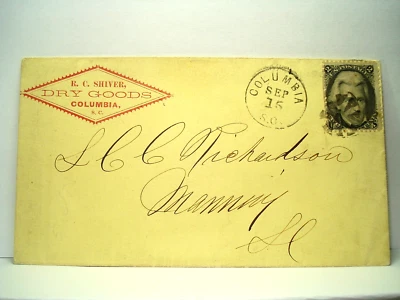 R. C. SHIVER,
DRY GOODS
COLUMBIA,
S. C.
COLUMBIA
SEP
15
S.C.
2 2
L C C Richardson
Manning
SC